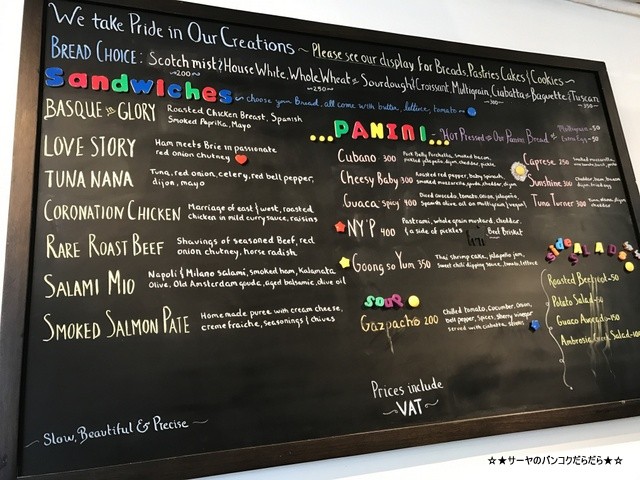 We take Pride in Our Creations ~ Please see our display for Breads, Pastries Cakes & Cookies ~
BREAD CHOICE: Scotch mist & House White, Whole Wheat or Sourdough & Croissant, Multigrain, Ciabatta or Baguette & Tuscan
~200~ ~250~ ~300~ 350~
Sandwiches ~ choose your Bread, all come with butter, lettuce, tomato
BASQUE in GLORY Roasted Chicken Breast, Spanish
Smoked Paprika, Mayo
LOVE STORY Ham meets Brie in passionate
red onion chutney
TUNA NANA Tuna, red onion, celery, red bell pepper,
dijon, mayo
CORONATION CHICKEN Marriage of east & west, roasted
chicken in mild curry sauce, raisins
RARE ROAST BEEF Shavings of seasoned Beef, red
onion chutney, horse radish
SALAMI MIO Napoli & Milano salami, smoked ham, Kalamata
Olive, Old Amsterdam gouda, aged balsamic, olive oil
SMOKED SALMON PATE Homemade puree with cream cheese,
creme fraiche, seasonings & chives
~ Slow, Beautiful & Precise ~
...PANINI... ~ Hot Pressed in Our Panini Bread or Multigrain +50
Extra Egg +50
Cubano 300 Pork Belly Porchetta, smoked bacon,
pickled jalapeño, dijon, cheddar, pickle
Cheesy Baby 300 Roasted red pepper, baby spinach,
smoked mozzarella, gouda, cheddar, dijon
Guaca spicy 400 Diced avocado, tomato, onion, jalapeño
NY'P 400 Pastrami, whole grain mustard, cheddar,
& a side of pickles
Beef Brisket
Goong so Yum 350 Thai shrimp cake, jalapeño jam,
sweet chili dipping sauce, tomato, lettuce
Caprese 250 Smoked mozzarella,
Sunshine 300 Cheddar, ham, tomato
dijon, fried egg
Tuna Turner 300 Tuna, onion, cheddar
SOUP
Gazpacho 200 Chilled tomato, cucumber, onion,
bell pepper, spices, sherry vinegar
served with ciabatta
Side SALADS
Roasted Beetroot ~50
Potato Salad
Guaco Avocado ~150
Ambrosia Greek Salad ~100
Prices include
~ VAT ~
☆★サーヤのバンコクだらだら★☆